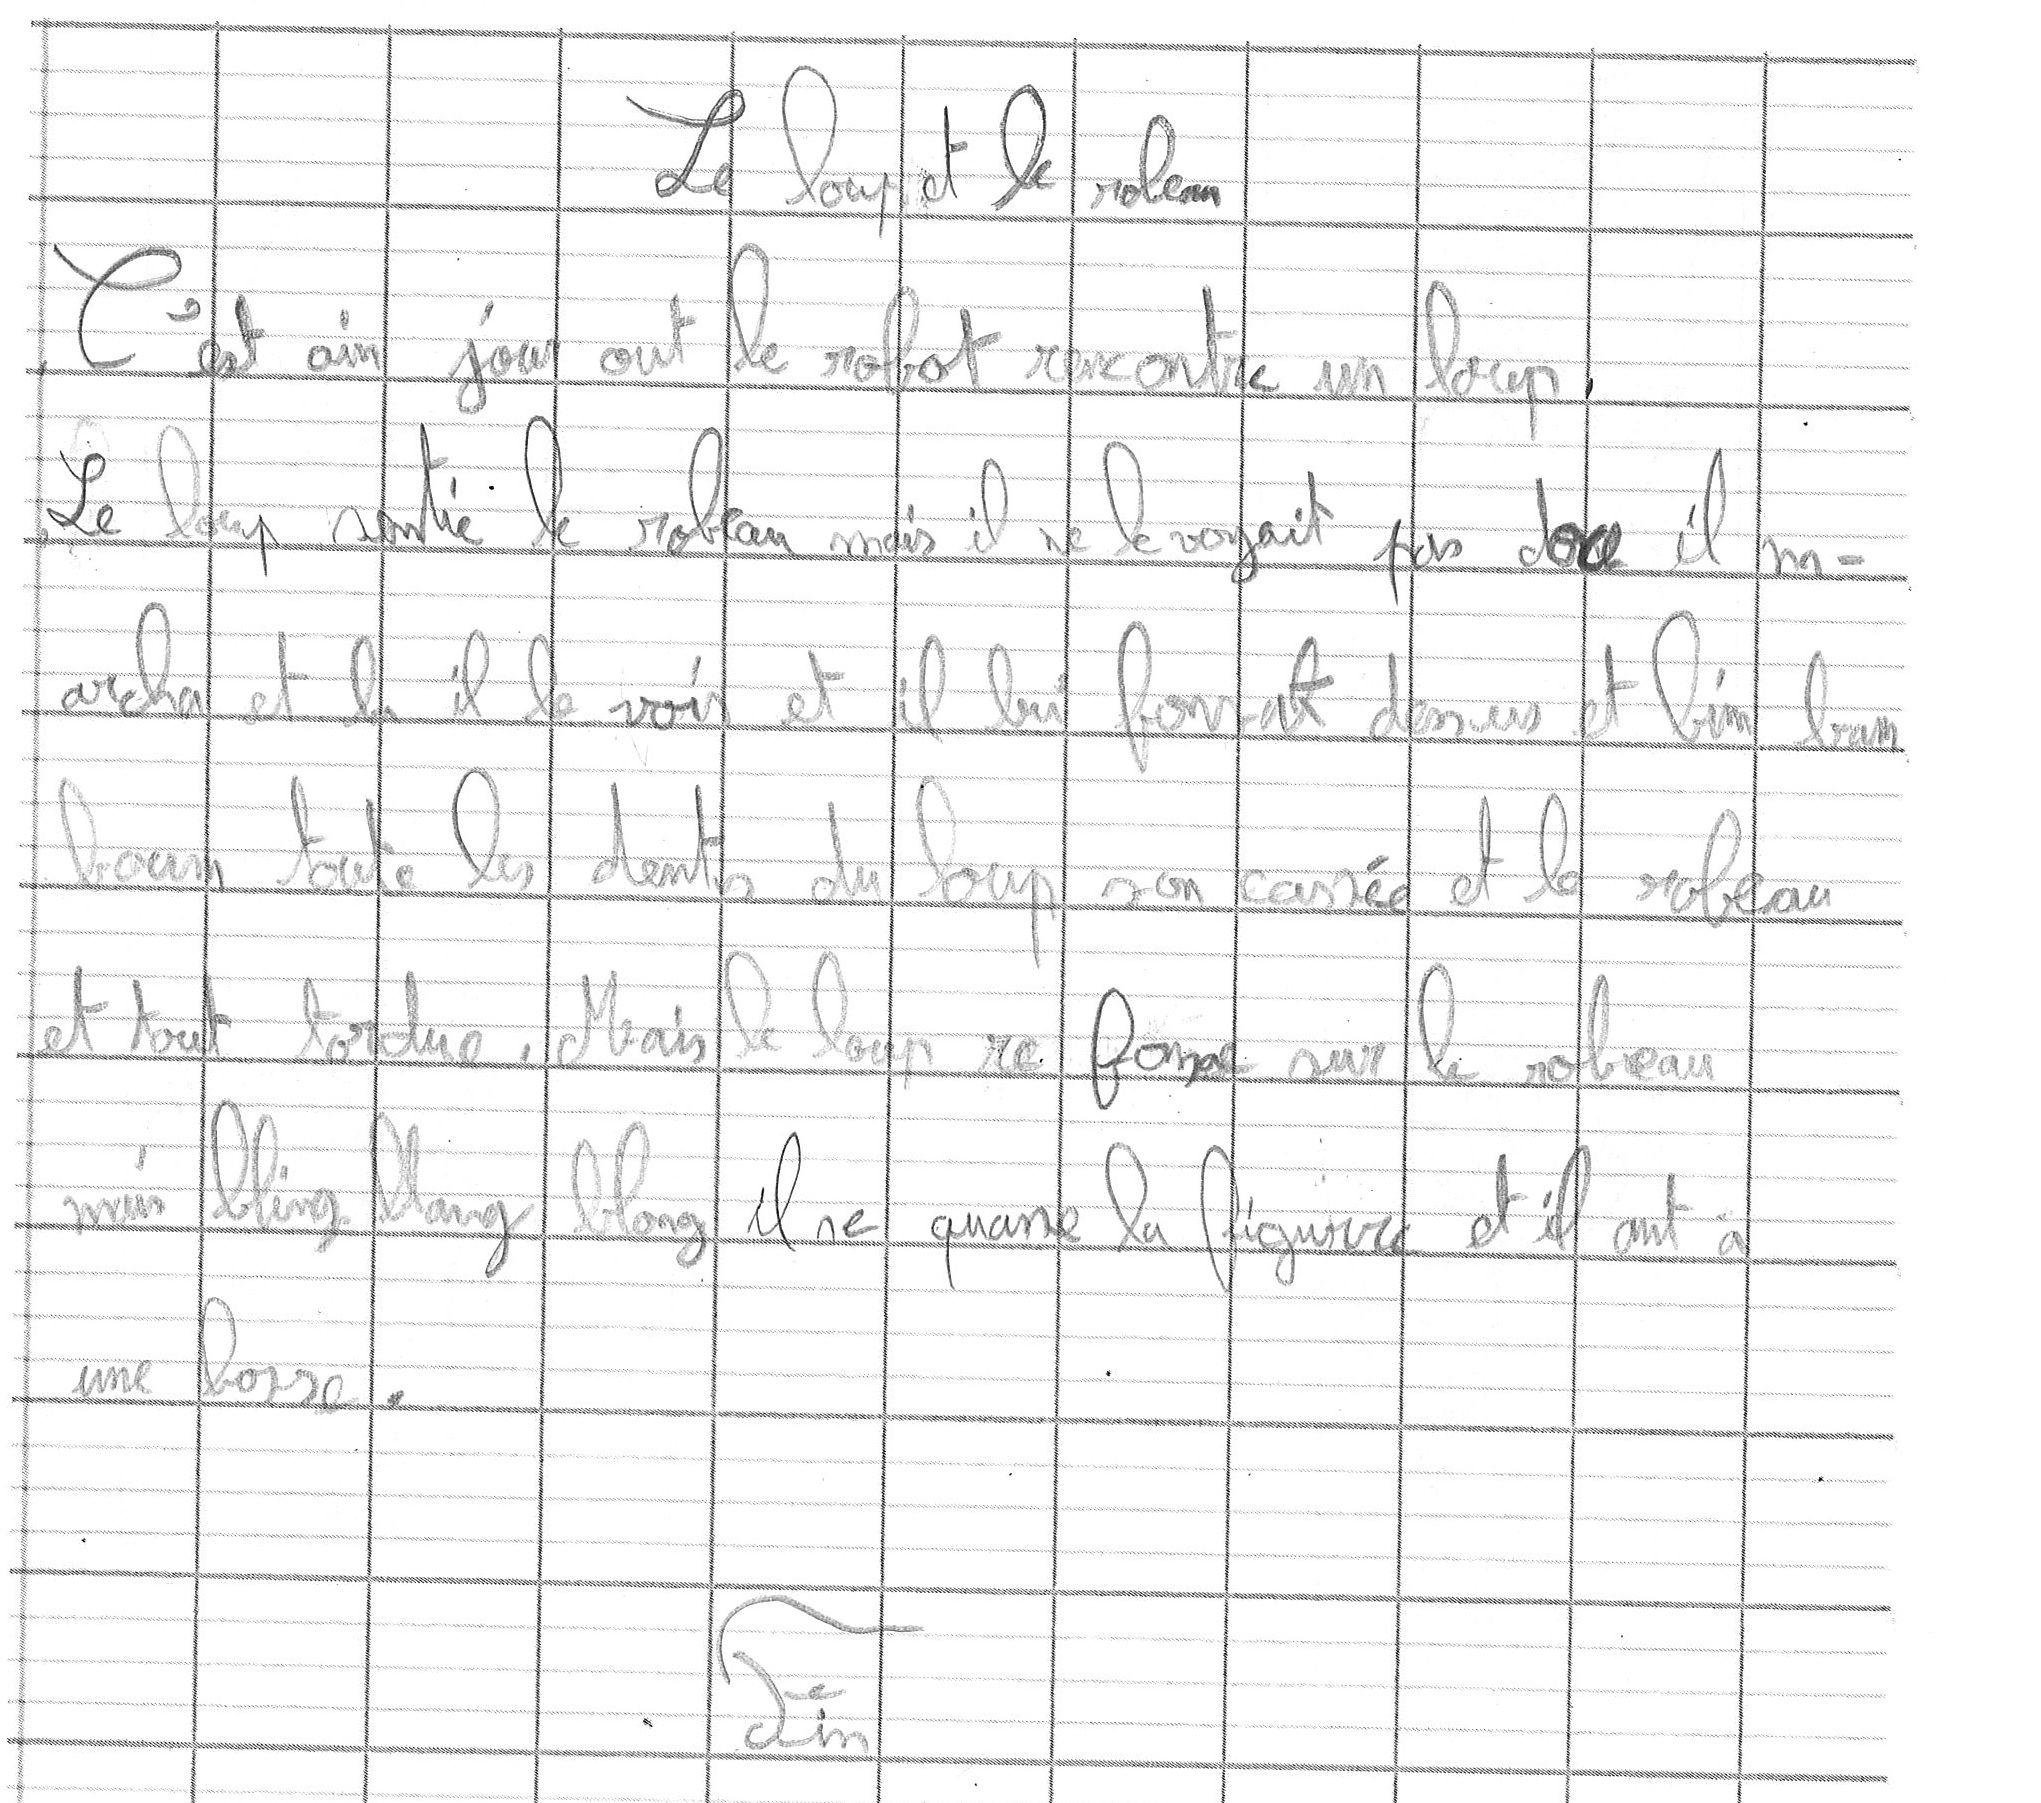 Le loup et le robeau
C'est ain jour out le robot rencontre un loup.
Le loup sentie le robeau mais il ne le voyait pas donc il m-
archa et la il le vois et il lui fonsat dessus et bim bam
boum toute les dents du loup son cassée et le robeau
et tout tordue. Mais le loup re fonse sur le robeau
mais bling blang blong il se quasse la figuivre et il ont a
une bosse.
Fin